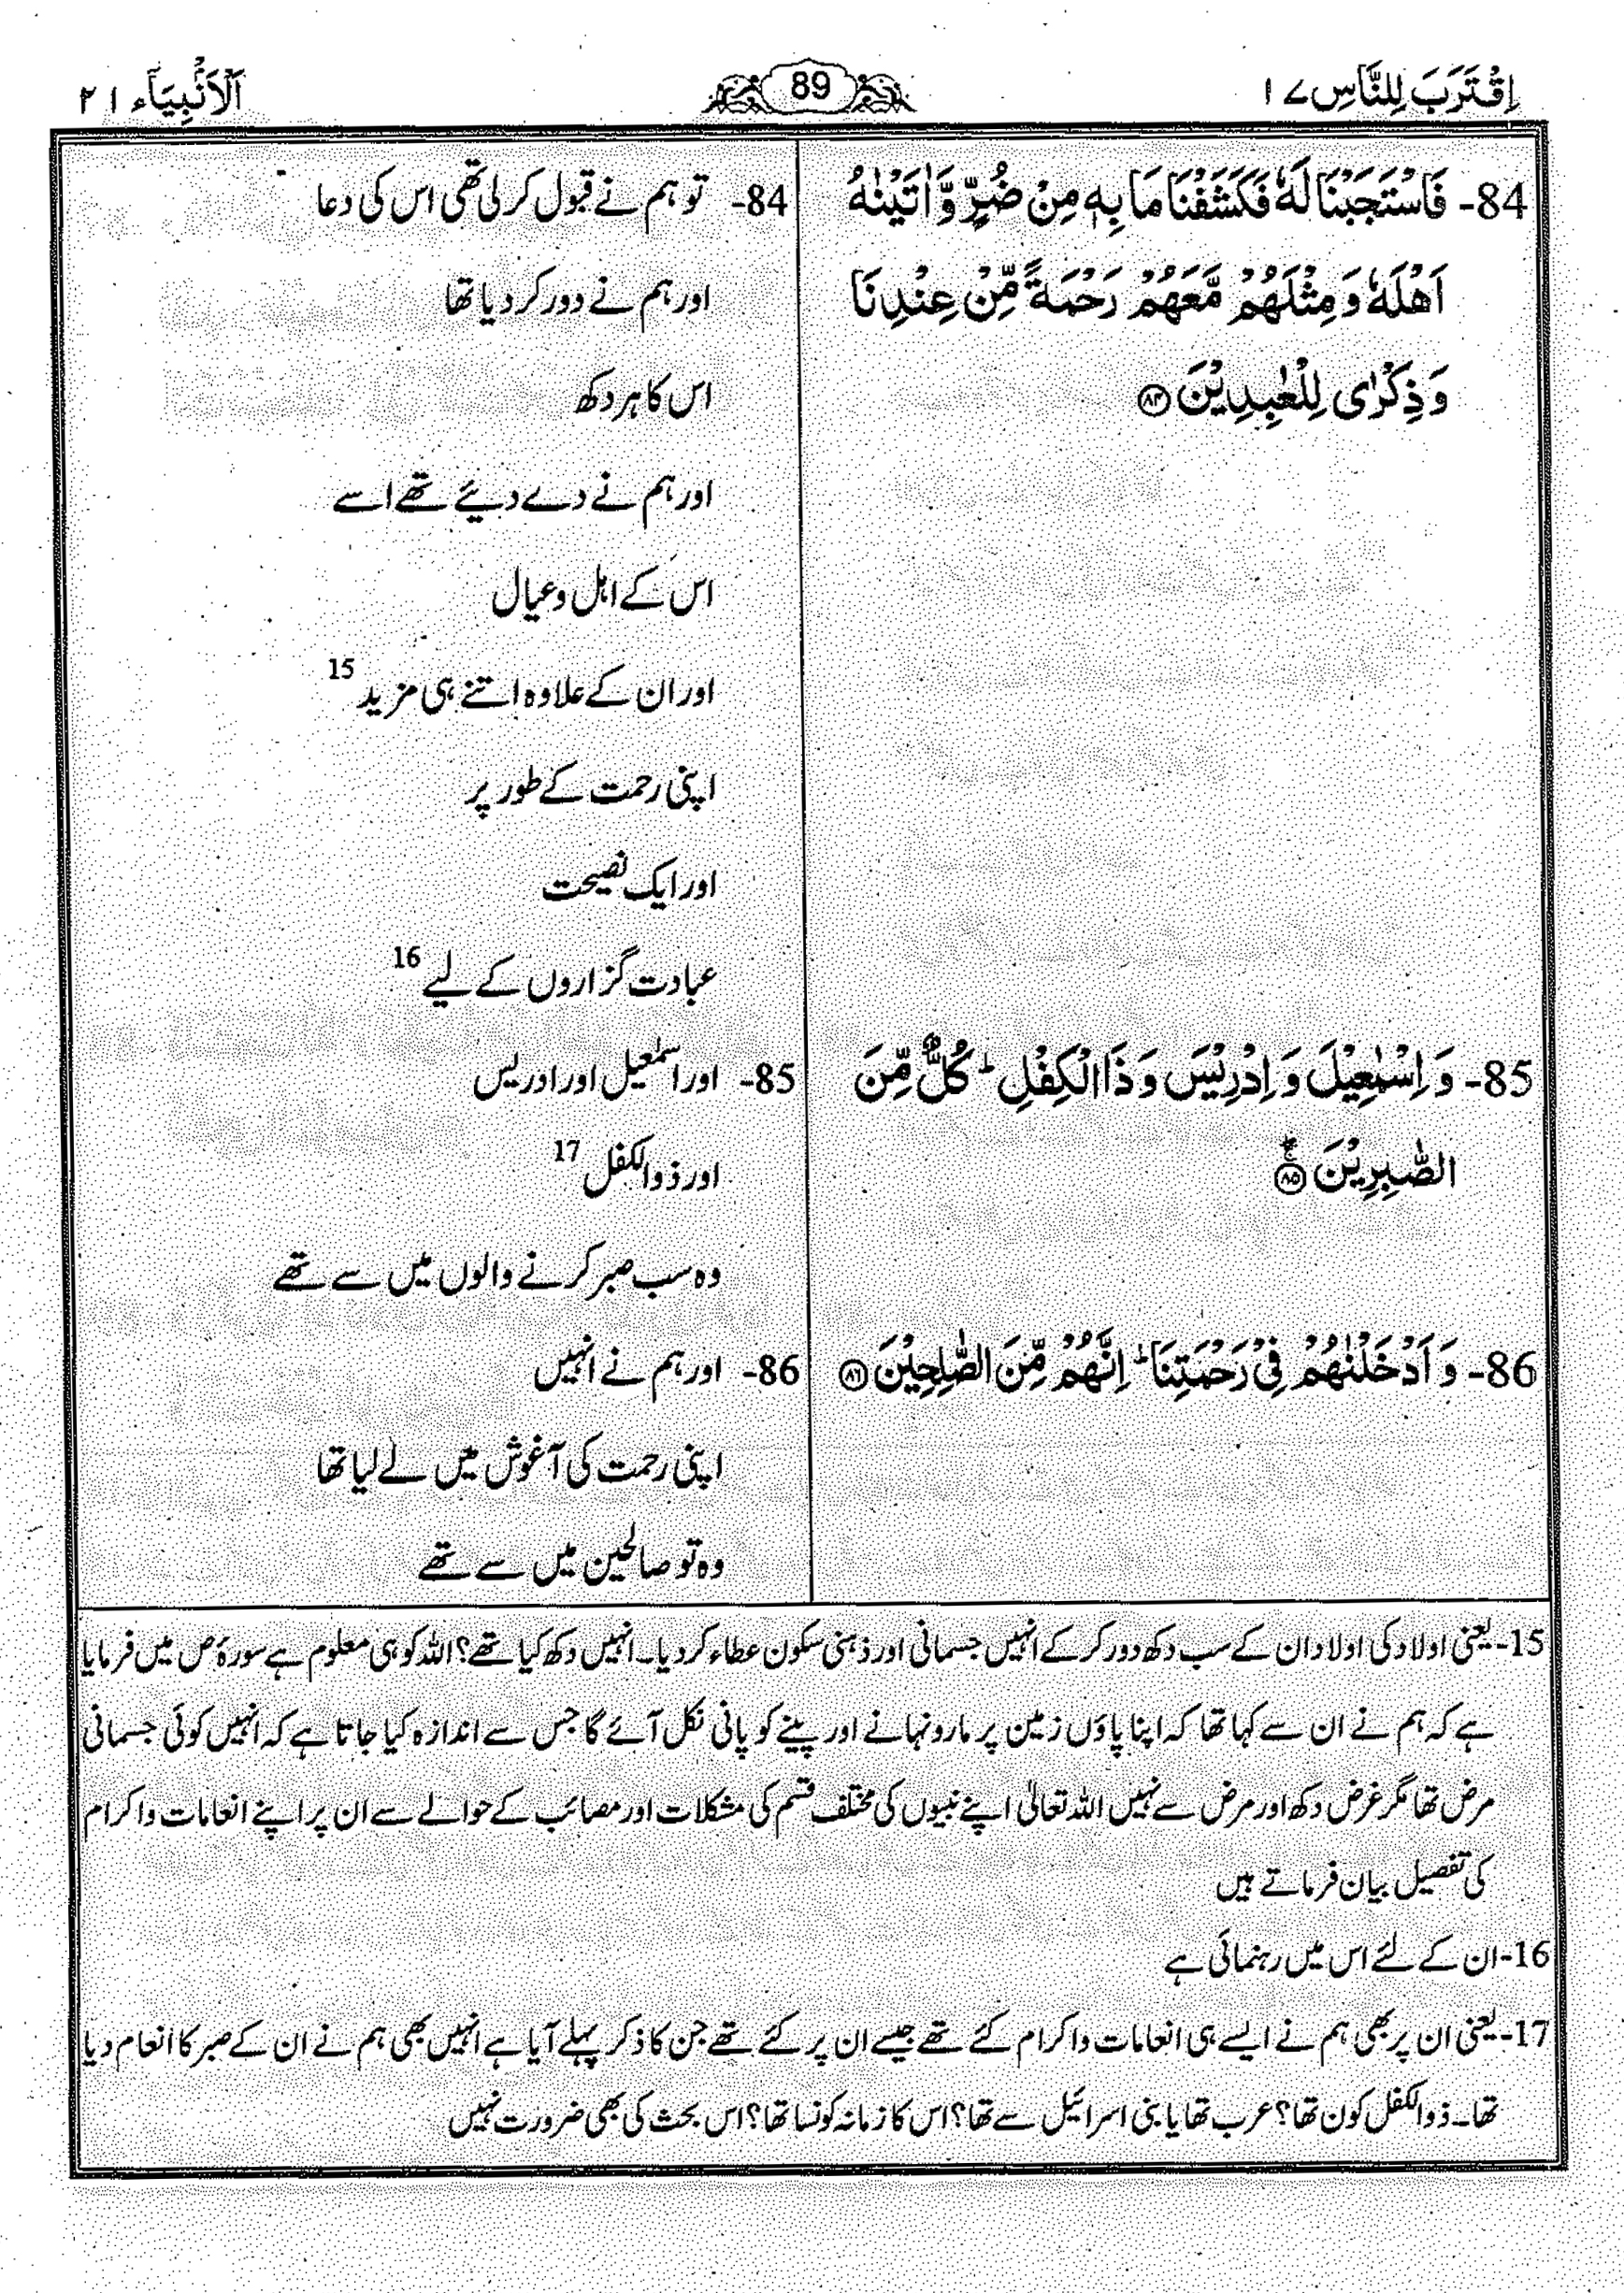 اِقْتَرَبَ لِلنَّاسِ ۱۷
89
اَلْاَنْۢبِيَآء ۲۱
84- فَاسْتَجَبْنَا لَهٗ فَكَشَفْنَا مَا بِهٖ مِنْ ضُرٍّ وَّ اٰتَيْنٰهُ
اَهْلَهٗ وَ مِثْلَهُمْ مَّعَهُمْ رَحْمَةً مِّنْ عِنْدِنَا
وَ ذِكْرٰى لِلْعٰبِدِيْنَ ۝۸۴
85- وَ اِسْمٰعِيْلَ وَ اِدْرِيْسَ وَ ذَا الْكِفْلِ ؕ كُلٌّ مِّنَ
الصّٰبِرِيْنَ ۝۸۵
86- وَ اَدْخَلْنٰهُمْ فِيْ رَحْمَتِنَا ؕ اِنَّهُمْ مِّنَ الصّٰلِحِيْنَ ۝۸۶
84- تو ہم نے قبول کر لی تھی اس کی دعا
اور ہم نے دور کر دیا تھا
اس کا ہر دکھ
اور ہم نے دے دیئے تھے اسے
اس کے اہل و عیال
اور ان کے علاوہ اتنے ہی مزید 15
اپنی رحمت کے طور پر
اور ایک نصیحت
عبادت گزاروں کے لیے 16
85- اور اسمٰعیل اور ادریس
اور ذوالکفل 17
وہ سب صبر کرنے والوں میں سے تھے
86- اور ہم نے انہیں
اپنی رحمت کی آغوش میں لے لیا تھا
وہ تو صالحین میں سے تھے
15- یعنی اولاد کی اولاد ان کے سب دکھ دور کر کے انہیں جسمانی اور ذہنی سکون عطاء کر دیا۔ انہیں دکھ کیا تھے؟ اللہ کو ہی معلوم ہے سورۂ ص میں فرمایا
ہے کہ ہم نے ان سے کہا تھا کہ اپنا پاؤں زمین پر مارو نہانے اور پینے کو پانی نکل آئے گا جس سے اندازہ کیا جاتا ہے کہ انہیں کوئی جسمانی
مرض تھا مگر غرض دکھ اور مرض سے نہیں اللہ تعالٰی اپنے نبیوں کی مختلف قسم کی مشکلات اور مصائب کے حوالے سے ان پر اپنے انعامات و اکرام
کی تفصیل بیان فرماتے ہیں
16- ان کے لئے اس میں رہنمائی ہے
17- یعنی ان پر بھی ہم نے ایسے ہی انعامات و اکرام کئے تھے جیسے ان پر کئے تھے جن کا ذکر پہلے آیا ہے انہیں بھی ہم نے ان کے صبر کا انعام دیا
تھا۔ ذوالکفل کون تھا؟ عرب تھا یا بنی اسرائیل سے تھا؟ اس کا زمانہ کونسا تھا؟ اس بحث کی بھی ضرورت نہیں